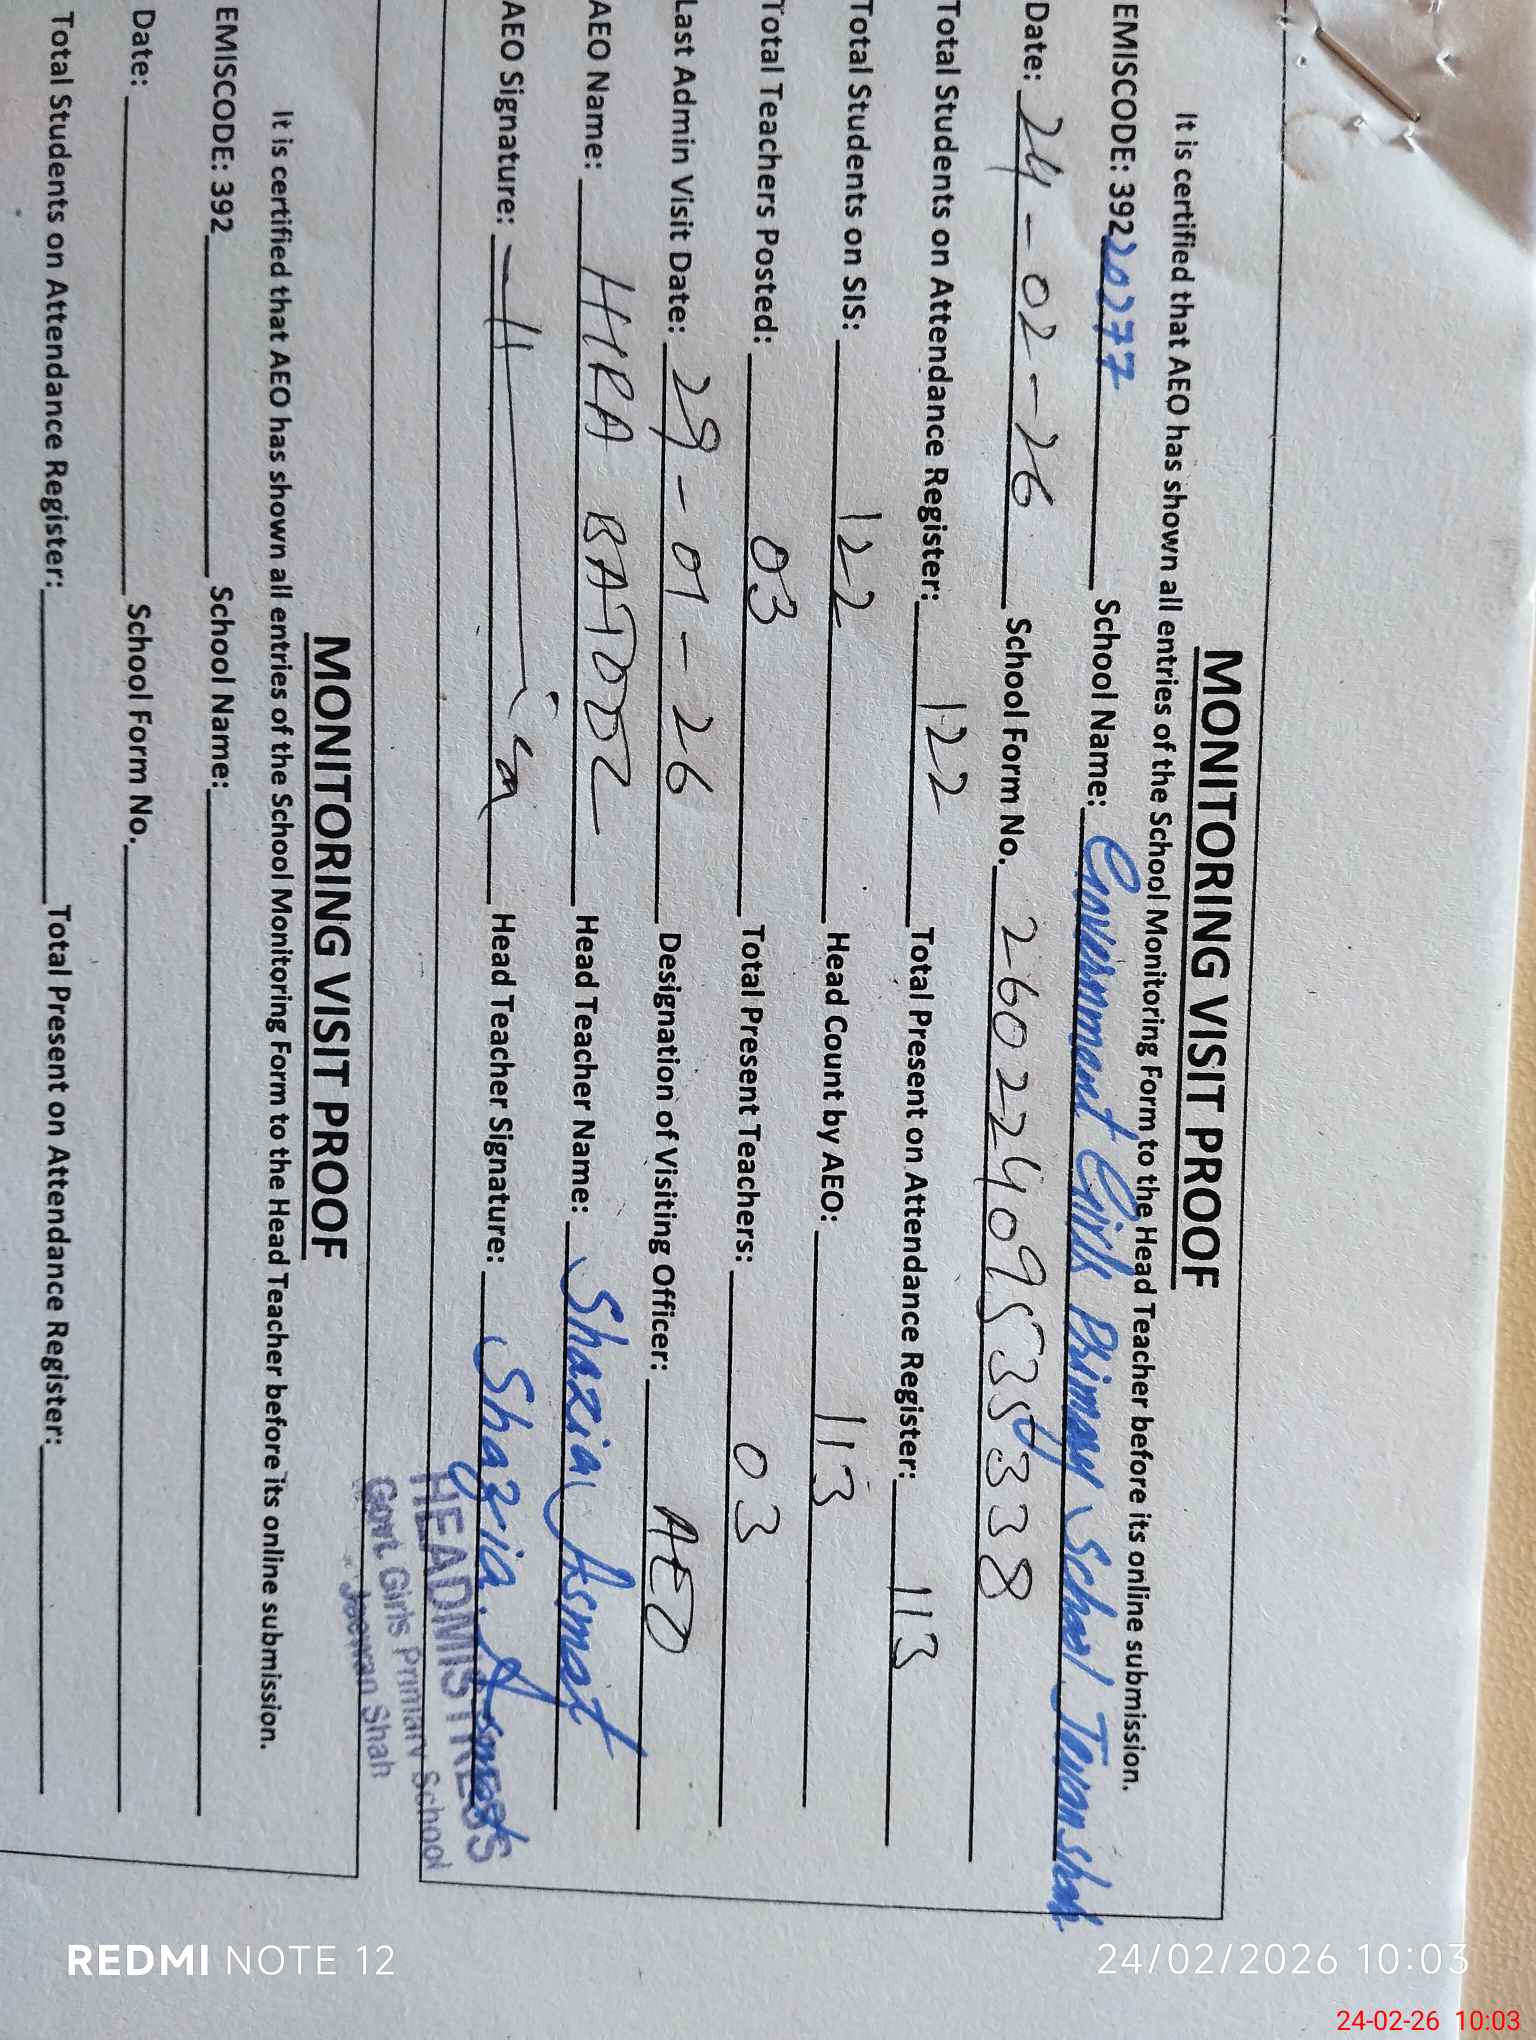 MONITORING VISIT PROOF
It is certified that AEO has shown all entries of the School Monitoring Form to the Head Teacher before its online submission.
EMISCODE: 39220277 School Name: Government Girls Primary School Jewan Shah
Date: 24-02-26 School Form No. 26022409535338
Total Students on Attendance Register: 122 Total Present on Attendance Register: 113
Total Students on SIS: 122 Head Count by AEO: 113
Total Teachers Posted: 03 Total Present Teachers: 03
Last Admin Visit Date: 29-01-26 Designation of Visiting Officer: AEO
AEO Name: HIRA Head Teacher Name: Shazia Asmat
AEO Signature: Head Teacher Signature: Shazia Asmat
HEADMISTRESS
Govt. Girls Primary School
Jeewan Shah
MONITORING VISIT PROOF
It is certified that AEO has shown all entries of the School Monitoring Form to the Head Teacher before its online submission.
EMISCODE: 392 School Name:
Date: School Form No.
Total Students on Attendance Register: Total Present on Attendance Register:
REDMI NOTE 12
24/02/2026 10:03
24-02-26 10:03